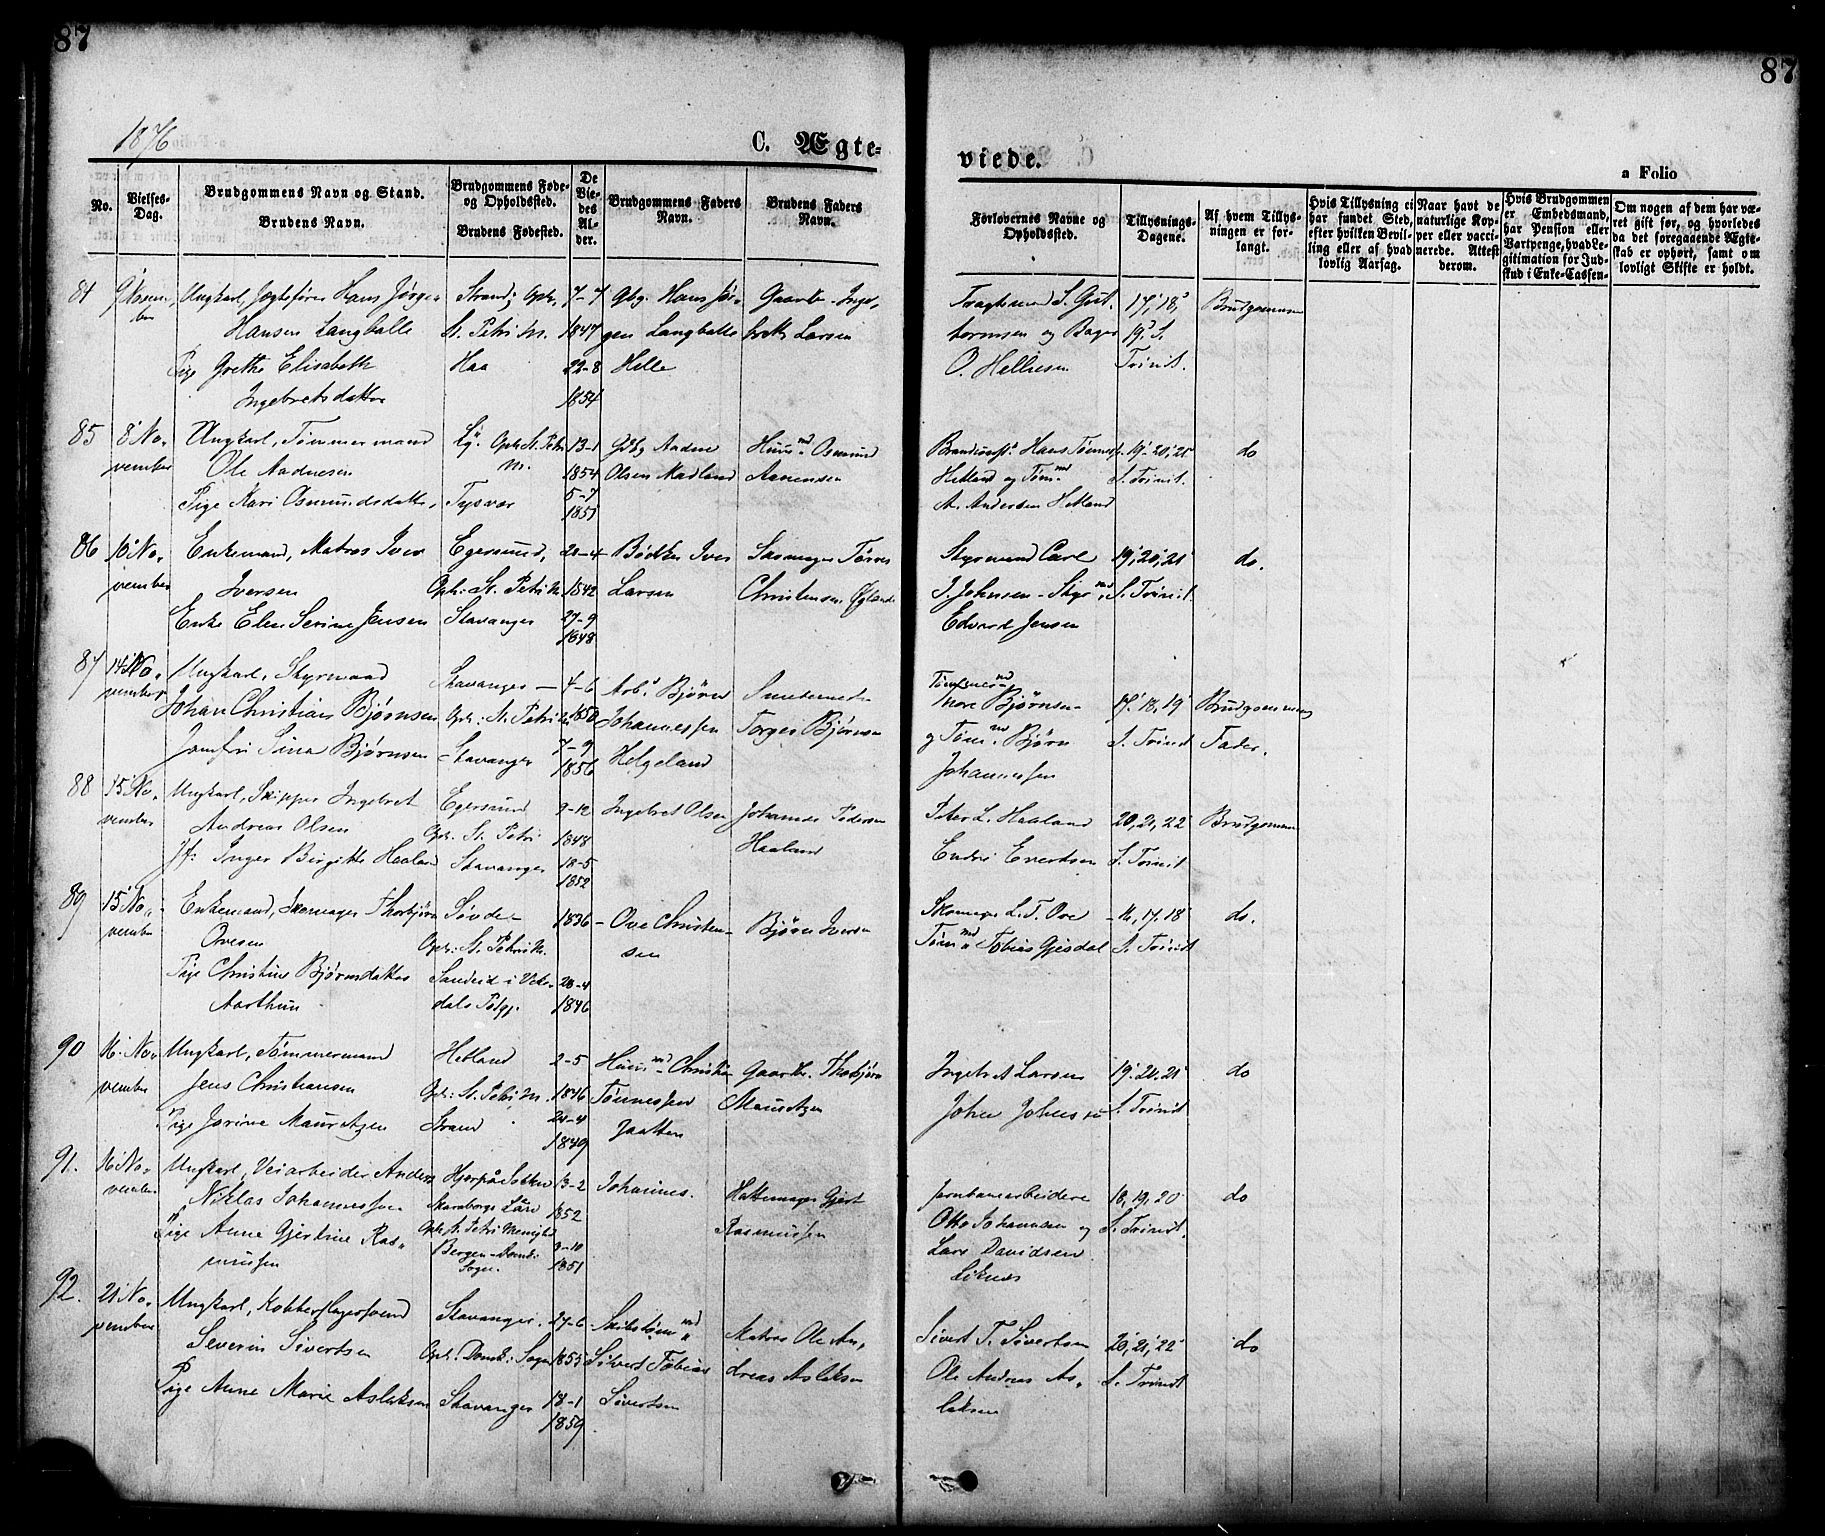 87
87
1876
C. Ægte-
viede.
a Folio
No.
Vielses-
Dag.
Brudgommens Navn og Stand.
Brudens Navn.
Brudgommens Føde-
og Opholdssted.
Brudens Fødested.
De
Vie-
des
Al-
der.
Brudgommens Faders
Navn.
Brudens Faders
Navn.
Forlovernes Navne og
Opholdssted.
Tillysnings-
Dagene.
Af hvem Tillys-
ningen er for-
langt.
Hvis Tillysning ei
har fundet Sted,
efter hvilken Bevil-
ling eller af hvad
lovlig Aarsag.
Naar havt de
naturlige Kop-
per eller vacci-
nerede. Attest
derom.
Hvis Brudgommen
er Embedsmand,
har Pension eller
Vartpenge, hvad Le-
gitimation for Ind-
skud i Enke-Cassen-
Om nogen af dem har væ-
ret gift før, og hvorledes
da det foregaaende Ægte-
skab er ophørt, samt om
lovligt Skifte er holdt.
84 Ungkarl, Jægtefører Hans Jørgen Strand; Oph. 7-7 Gbg. Hans Jør- Gaardbr. Inge- 17, 18, Brudgommen
Hansen Langballe St. Petri M. 1847 gen Langballe bret Larsen og Bager 19. S.
Pige Grethe Elisabeth Haa 22-8 Helle O. Helliesen Trinit.
Ingebretsdatter 1854
85 8 No- Ungkarl, Tømmermand Oph. St. Petri 13-1 Gbg Aadne Huusmd Osmund Hans Tønnes 19. 20, 21 do
vember Ole Aadnesen M. 1854 Olsen Madland Aanensen Hetland og Tømmd S. Trinit.
Pige Kari Osmundsdatter, Tysvær 5-7 A. Andersen Hetland
1851
86 10 No- Enkemand, Matros Iver Egersund, 20-4 Bødker Iver Skomager Tørres Styrmand Carl 19, 20, 21 do.
vember Iversen Oph: St. Petri M. 1842 Larsen Christensen J. Johnsen - Styrmd S. Trinit.
Enke Elen Serine Jensen Stavanger 27-9 Edvard Jensen
1848
87 14 No- Ungkarl, Styrmand Stavanger - 4-6 Arb. Bjørn Smedemd Tømmermd
vember Johan Christian Bjørnsen Oph: St. Petri M. 1850 Johannessen Torger Bjørnsen Thore Bjørnsen 17. 18, 19 Brudgommens
Jomfru Sina Bjørnsen Stavanger 7-9 Helgeland og Tømmd Bjørn S. Trinit Fader.
1856 Johannessen
88 15 No- Ungkarl, Skipper Ingebret Egersund 9-12 Ingebret Olsen Johannes Pedersen Peter L. Haaland 20, 21, 22 Brudgommen
vember Andreas Olsen Oph. St. Petri 1848 Haaland Endre Evertsen S. Trinit
Jf: Inger Birgitte Haaland Stavanger 18-5
1852
89 15 No- Enkemand, Skomager Thorbjørn Søvde- 1836 - Ove Christen- Bjørn Iversen Skomager L. T. Ove - 16, 17. 18 do.
vember Ovesen Oph: St. Petri M. sen Tømmd Tobias Gjesdal S. Trinit
Pige Christine Bjørnsdatter Sandeid i Vike- 20-4
Aarthun dals Prstgj. 1846
90 16. No- Ungkarl, Tømmermand Hetland 2-5 Huusmd Christian Gaardbr. Thorbjørn Ingebret Larsen 19. 20. 21 do
vember Jens Christiansen Oph: St. Petri M. 1846 Tønnessen Mauritzen Johan Johnsen S. Trinit
Pige Jorine Mauritzen Strand 24-4 Jaatten
1849
91. 16 No- Ungkarl, Veiarbeider Anders 13-2 Johannes. Hattemager Gjert Jernbanearbeidere 18, 19, 20 do
vember Niklas Johannessen Skaraborgs Län 1852 Rasmussen Otto Johannsen og S. Trinit.
Pige Anne Gjertine Ras- Oph. St. Petri Menighd 9-10 Lars Davidsen
mussen Bergen Domk: Sogn. 1851
92. 21 No- Ungkarl, Kobberslagersvend Stavanger. 27-6 Skibstømmd Matros Ole An- Sivert T. Sivertsen 20, 21, 22 do
vember Severin Sivertsen Oph. Domk: Sogn 1855 Sivert Tobias dreas Aslaksen Ole Andreas As- S. Trinit
Pige Anne Marie Aslaksen Stavanger 18-1 Sivertsen laksen
1859.